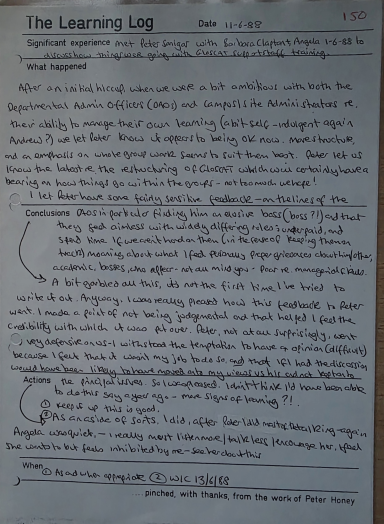 150
The Learning Log Date 11-6-88
Significant experience Met Peter Smigar with Barbara Clapton + Angela 1-6-88 to
discuss how things were going with Gloscat Support staff training.
What happened
After an initial hiccup, when we were a bit ambitious with both the
Departmental Admin Officers (DAOs) and Campus/Site Administrators re.
their ability to manage their own learning (a bit self-indulgent again
Andrew?) we let Peter know it appears to being OK now. More structure,
and an emphasis on whole group work seems to suit them best. Peter let us
know the latest re the restructuring of Gloscat which will certainly have a
bearing on how things go within the groups - not too much we hope!
I let Peter have some fairly sensitive feedback - on the lines of the
Conclusions DAOs in particular finding him an elusive boss (boss?!) and that
they feel aimless with widely differing roles + underpaid, and
spend time (if we aren't hard on them (in the sense of keeping them on
track) moaning about what I feel
academic, bosses, who
A bit garbled all this, it's not the first time I've tried to
write it out. Anyway, I was really pleased how this feedback to Peter
went. I made a point of not being judgmental and that helped I feel the
credibility with which it was put over. Peter, not at all surprisingly, went
very defensive on us - I withstood the temptation to have an opinion (difficult)
because I felt that it wasn't my job to do so, and that if I had the discussion
would have been likely to have moved into my views vs his and not kept to
Actions the principal issues. So I was pleased. I don't think I'd have been able
to do this say a year ago - more signs of learning?!
① Keep it up this is good.
② As an aside of sorts, I did, after Peter left most of the talking - again
Angela was quiet, - I really must listen more / talk less / encourage her, I feel
she wants to but feels inhibited by me - see her about this
When
① As and when appropriate ② W/C 13/6/88
...pinched, with thanks, from the work of Peter Honey